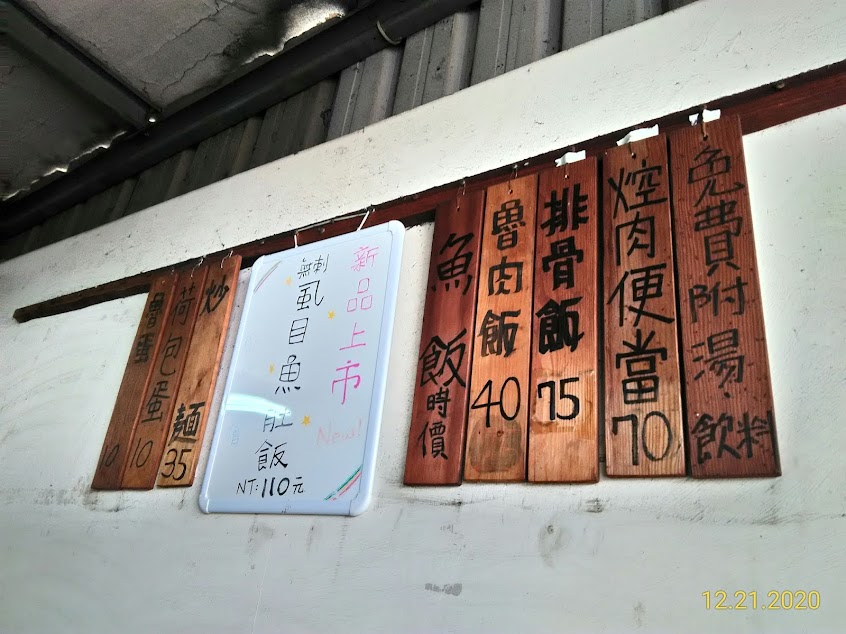 免費附湯、飲料
焢肉便當70
排骨飯75
魯肉飯40
魚飯時價
新品上市
New!
無刺
虱目魚肚飯
NT:110元
炒麵35
荷包蛋10
魯蛋10
12.21.2020